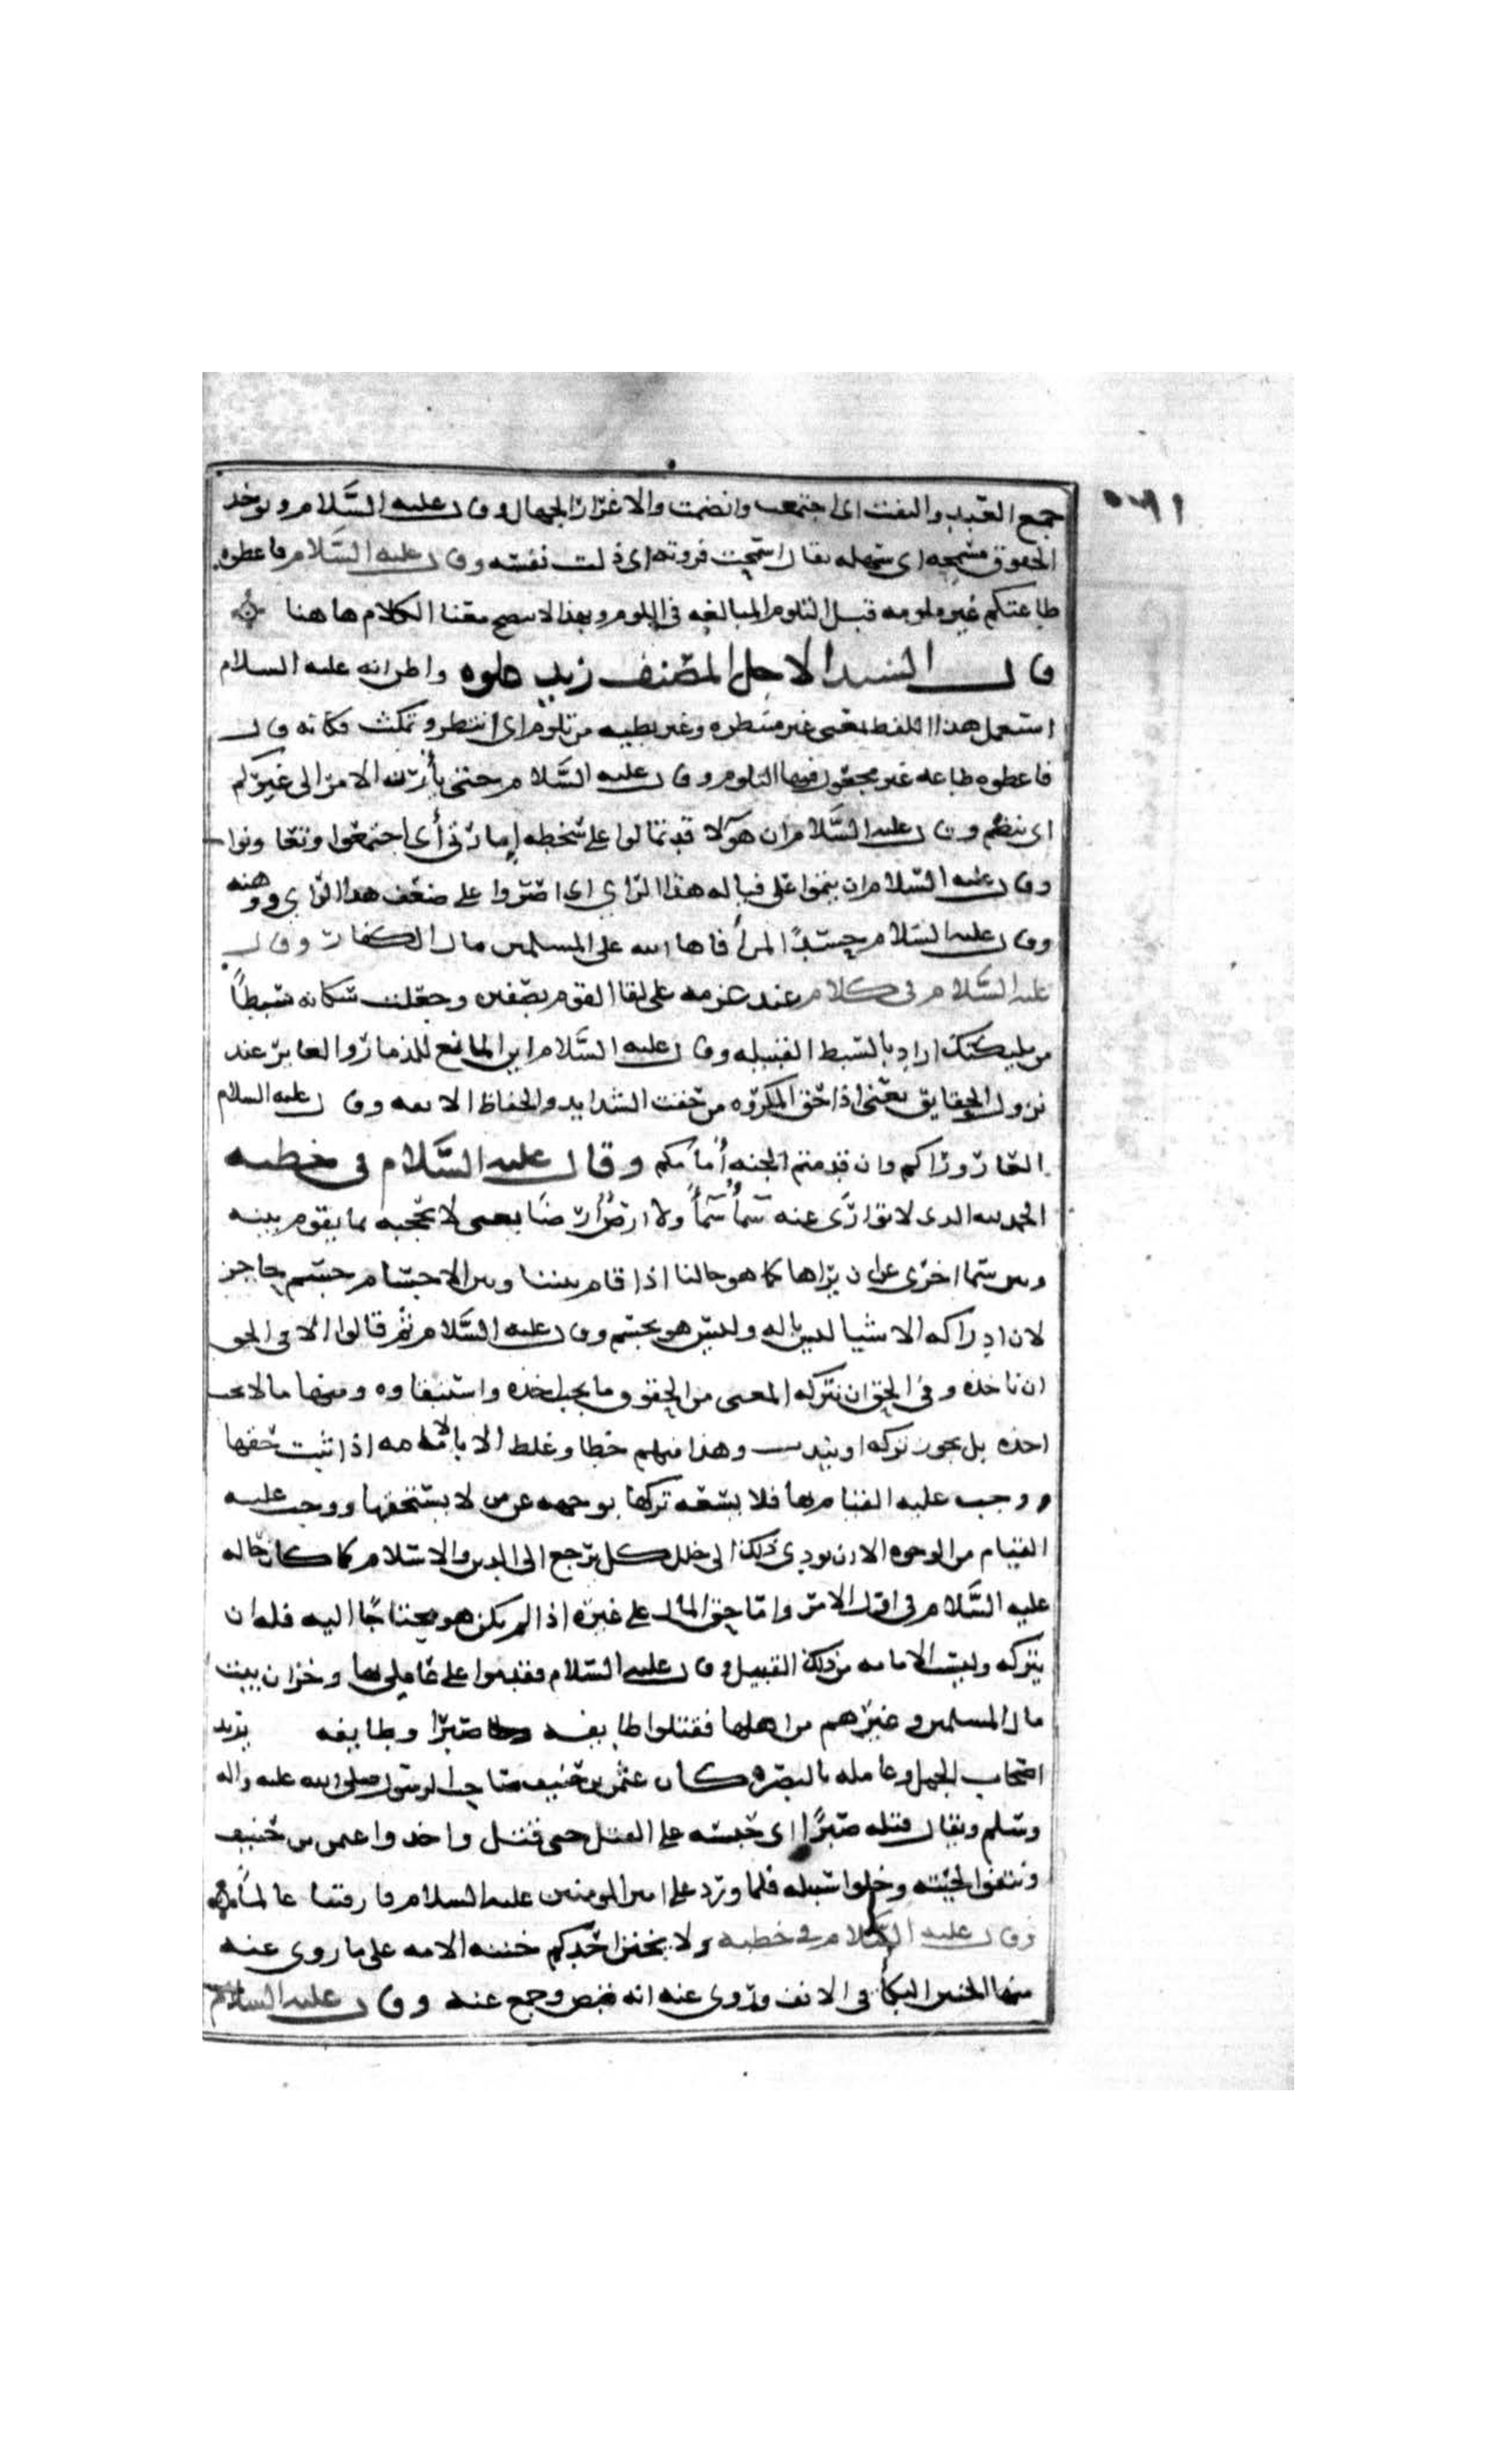 جميع العبيد والتفت اى اجتمعت وانضمت والاغرار الجهال وقال عليه السَّلام ويوخد
الحقوق مسمحه اى سهله يقال اسمحت قرونته اى ذلت نفسه وقال عليه السَّلام فاعطوه
طاعتكم غير ملومه قبل التلوم المبالغه فى اللوم وبهذا لا يصح معنا الكلام هاهنا
قال السيد الاجل المصنف زيد علوه واطن انه عليه السلام
استعمل هذا اللفظ بمعنى غير منتظره وغير بطيه من تلوم اى انتظر وتمكث فكانه قال
فاعطوه طاعه غير مجعول فيها التلوم وقال عليه السَّلام حتى يأرز الامر الى غيركم
اى ينضم وقال عليه السَّلام ان هولا قد تمالوا على سخطه إمارتى أى اجتمعوا وتعاونوا
وقال عليه السَّلام ان تمموا على فياله هذا الراى اى استمروا على ضعف هذا الراى ووهنه
وقال عليه السَّلام حسدًا لمن أفاها الله على المسلمين مال الكفار وقال
عليه السَّلام فى كلام عند عزمه على لقا القوم بصفين وجعلت سكانه سبطاً
من مليكتك اراد بالسبط القبيله وقال عليه السَّلام اين المانع للذمار والغاير عند
نزول الحقايق يعنى اذا حق المكروه من خفت الشدايد والحفاظ الانعه وقال عليه السلام
العار وراكم وان قدمتم الجنه أمامكم وقال عليه السَّلام فى خطبه
الحمد لله الدى لا توارَى عنه سمآءٌ سمآءً ولا ارضٌ ارضاً يعنى لا تحجبه بما يقوم بينه
وبين سما اخرى عن ان يراها كما هو حالنا اذا قام بيننا وبين الاجسام جسم حاجز
لان ادراكه الاشيا ليس باله وليس هو بجسم وقال عليه السَّلام ثم قالوا الا فى الحق
ان ناخذه وفى الحق ان نتركه المعنى من الحقوق ما يجب اخذه واستيفاوه ومنها ما لا يجب
اخذه بل يجوز تركه او يندب وهذا منهم خطا وغلط لان الامامه اذا ثبت حقها
ووجب عليه القيام بها فلا يسعه تركها بوجهه عن من لا يستحقها ووجب عليه
القيام من الوجوه الا ان يودى ذلك الى خلل كل يرجع الى الدين والاسلام كما كان حاله
عليه السَّلام فى اول الامر واما حق المال على غيره اذا لم يكن هو محتاجًا اليه فله ان
يتركه وليست الامامه من ذلك القبيل وقال عليه السَّلام فقدموا على عاملى بها وخزان بيت
مال المسلمين وغيرهم من اهلها فقتلوا طايفه صبرًا وطايفه يريد
اصحاب الجمل وعامله بالبصره كان عثمن بن حنيف صاحب الرسول صلى الله عليه واله
وسلم ويقال قتله صبرًا اى حبسه على القتل حتى قتل واخدوا عثمن بن حنيف
ونتفوا لحيته وخلوا سبيله فلما ورد على امير المومنين عليه السلام
وقال عليه السَّلام فى خطبه ولا يخنن احدكم خنين الامه على ما روى عنه
منها الخنين البكآ فى الانف وروى عنه وقال عليه السلام